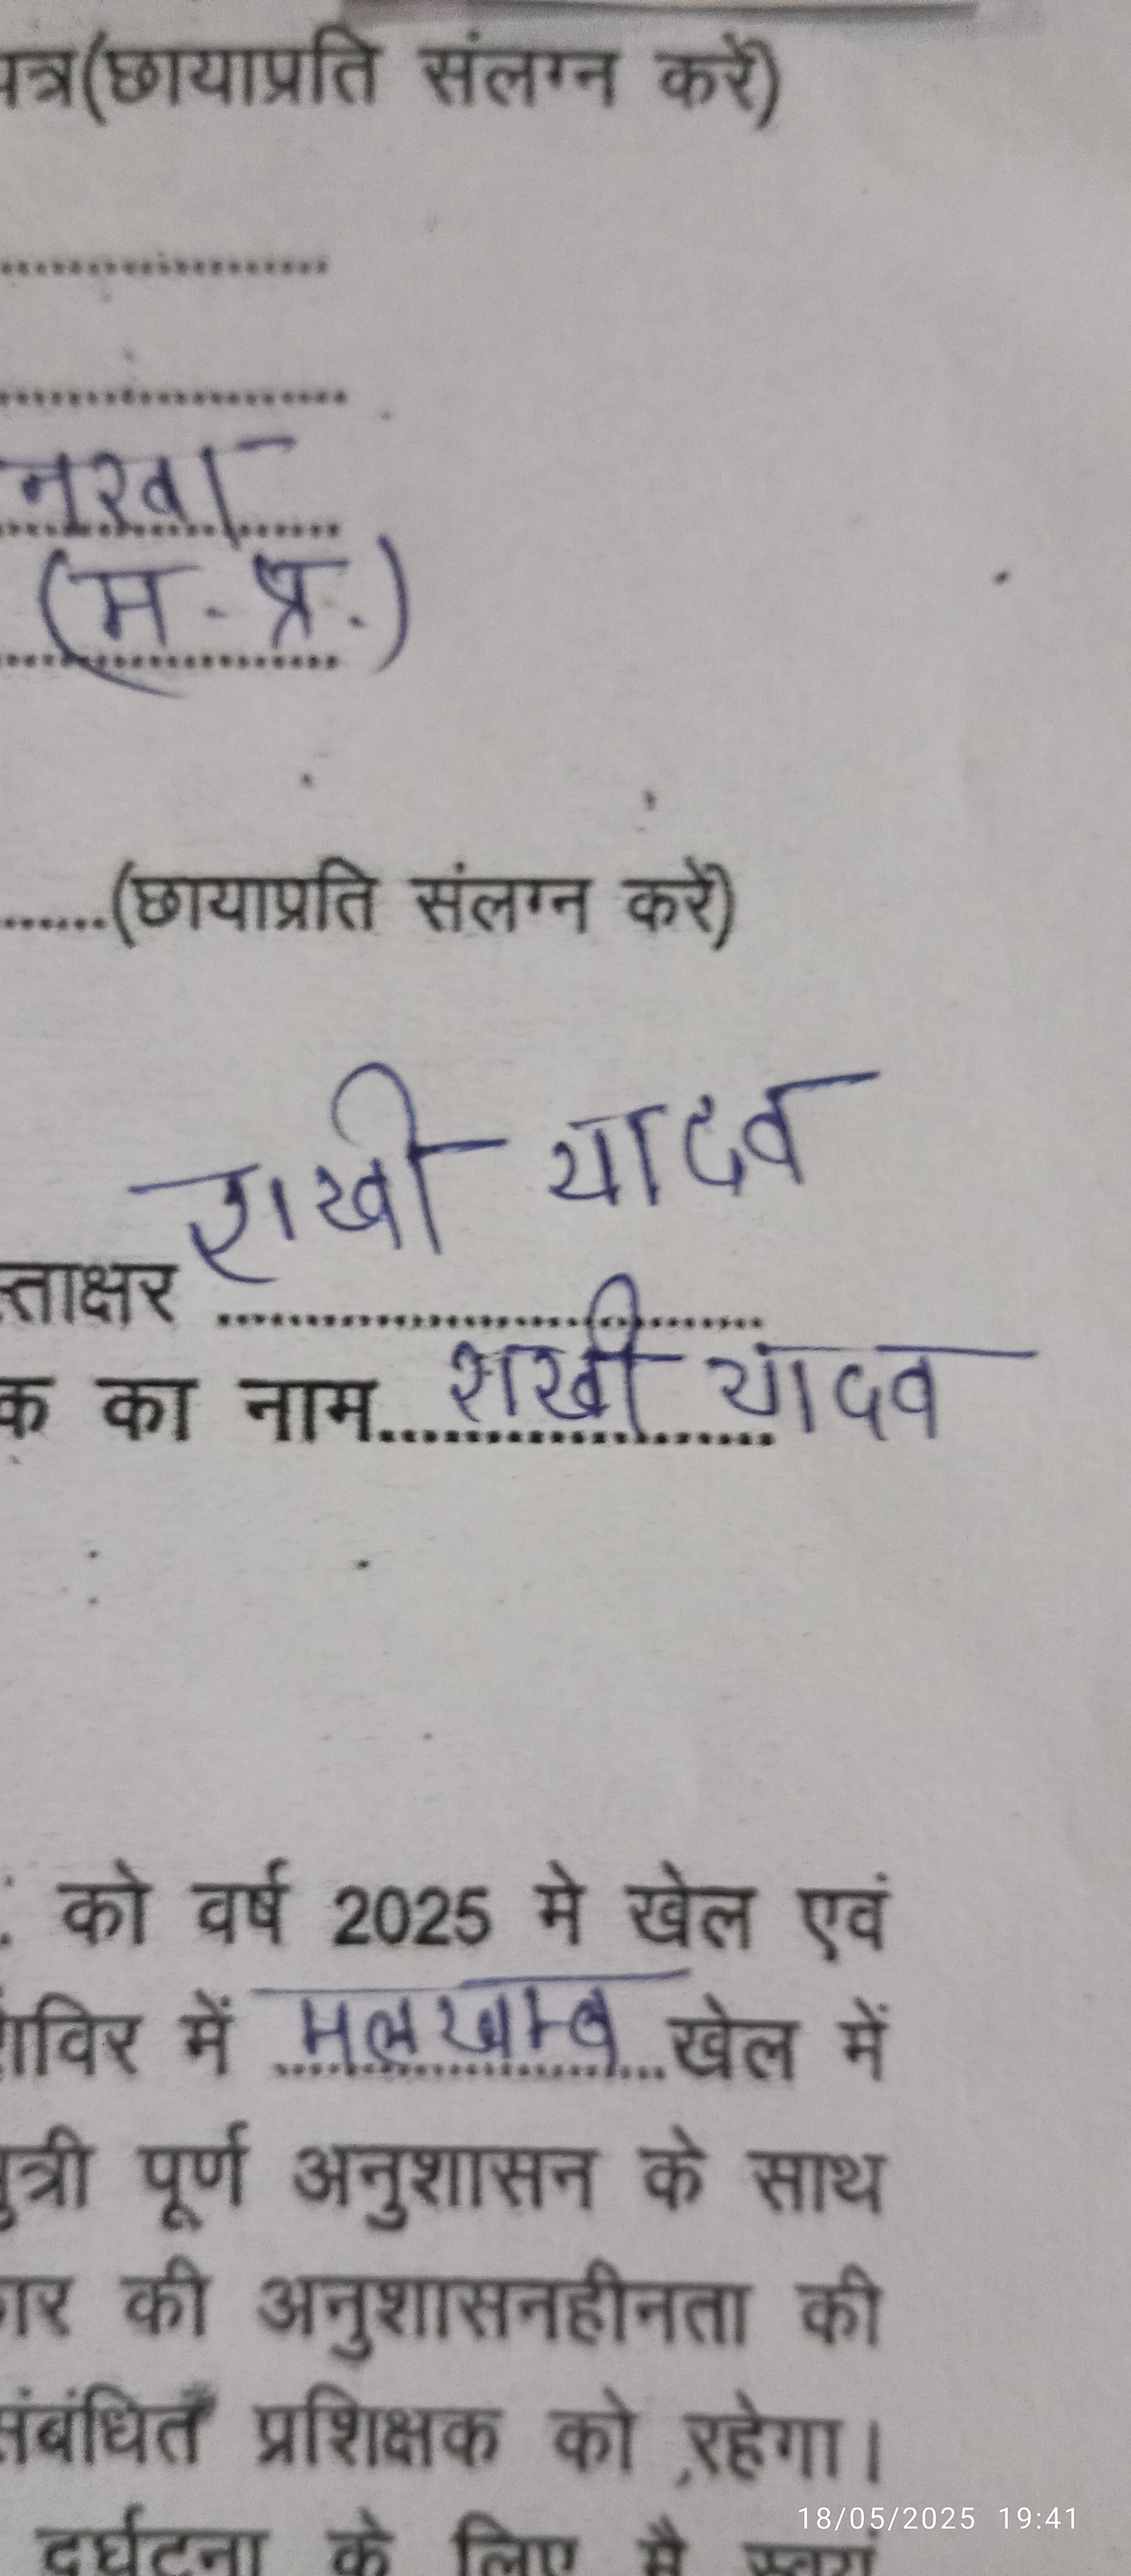 पत्र(छायाप्रति संलग्न करें)
..............................
..............................
नरवा
(म. प्र.)
.......(छायाप्रति संलग्न करें)
राखी यादव
स्ताक्षर ..............................
क का नाम..... राखी यादव
. को वर्ष 2025 मे खेल एवं
शिविर में मलखम्ब खेल में
पुत्री पूर्ण अनुशासन के साथ
कार की अनुशासनहीनता की
संबंधित प्रशिक्षक को रहेगा।
दुर्घटना के लिए मै स्वयं
18/05/2025 19:41